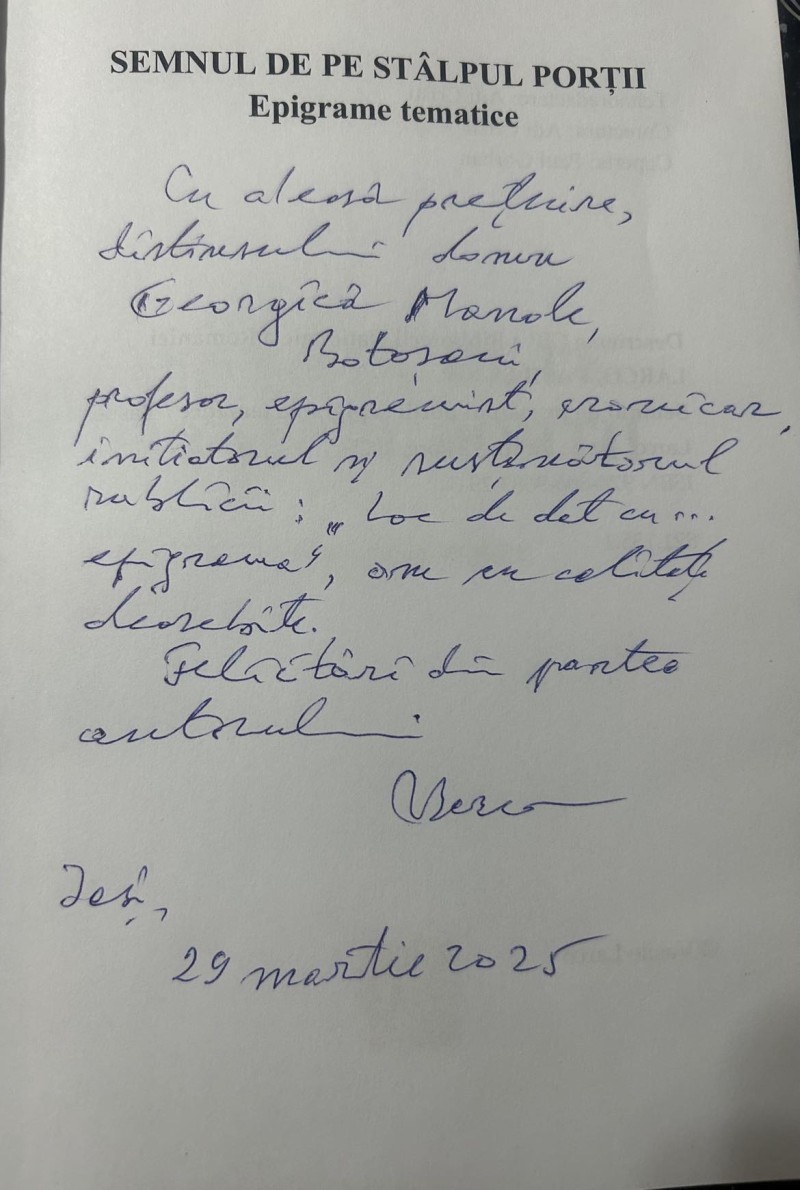 SEMNUL DE PE STÂLPUL PORȚII
Epigrame tematice
Cu aleasă prețuire,
distinsului domn
Georgică Manole,
Botoșani,
profesor, epigramist, cronicar,
inițiatorul și susținătorul
rublicii: „Loc de dat cu...
epigrama", om cu calități
deosebite.
Felicitări din partea
autorului
Iași,
29 martie 2025